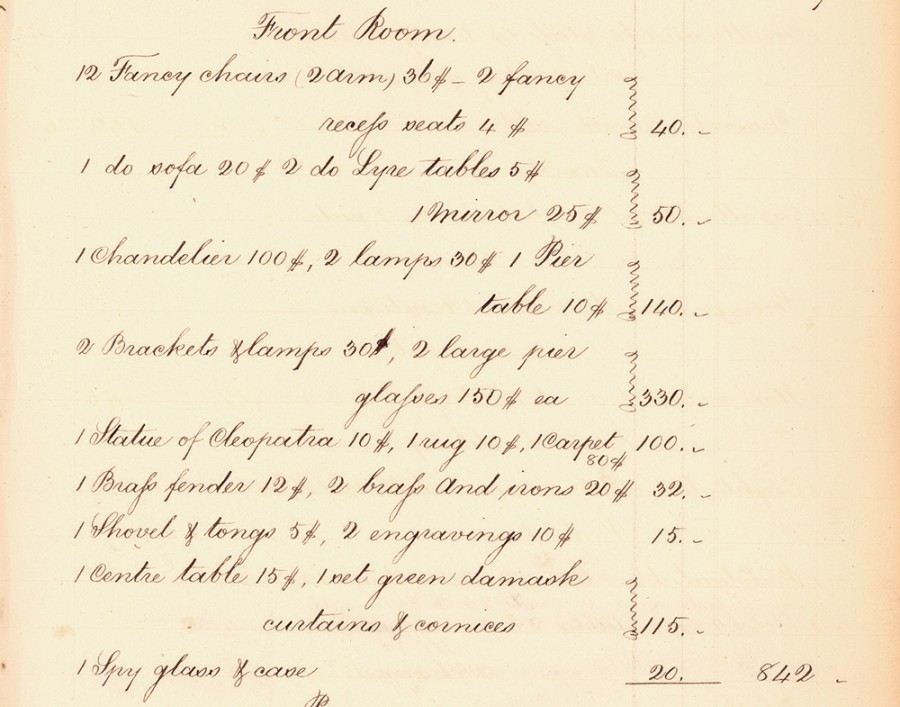 Front Room.
12 Fancy chairs (2 arm) 36$ - 2 fancy
recess seats 4 $ 40. -
1 do sofa 20 $ 2 do Lyre tables 5$
1 Mirror 25$ 50. -
1 Chandelier 100$, 2 lamps 30$ 1 Pier
table 10$ 140. -
2 Brackets & lamps 30$, 2 large pier
glasses 150$ ea 330. -
1 Statue of Cleopatra 10$, 1 rug 10$, 1 Carpet 100. -
80$
1 Brass fender 12$, 2 brass And irons 20$ 32. -
1 Shovel & tongs 5$, 2 engravings 10$ 15. -
1 Centre table 15$, 1 set green damask
curtains & cornices 115. -
1 Spy glass & case 20. 842 -